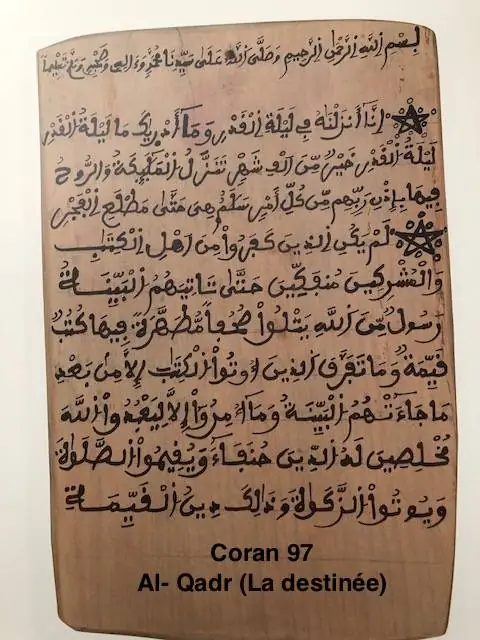 بسم الله الرحمن الرحيم وصلى الله على سيدنا محمد وءاله وصحبه وسلم تسليما
إنا أنزلنه في ليلة القدر وما أدريك ما ليلة القدر
ليلة القدر خير من ألف شهر تنزل الملئكة والروح
فيها بإذن ربهم من كل أمر سلم هي حتى مطلع الفجر
لم يكن الذين كفروا من اهل الكتب
والمشركين منفكين حتى تاتيهم البينة
رسول من الله يتلوا صحفا مطهرة فيها كتب
قيمة وما تفرق الذين اوتوا الكتب إلا من بعد
ما جاءتهم البينة وما امروا إلا ليعبدوا الله
مخلصين له الدين حنفاء ويقيموا الصلوة
ويوتوا الزكوة وذالك دين القيمة
Coran 97
Al- Qadr (La destinée)